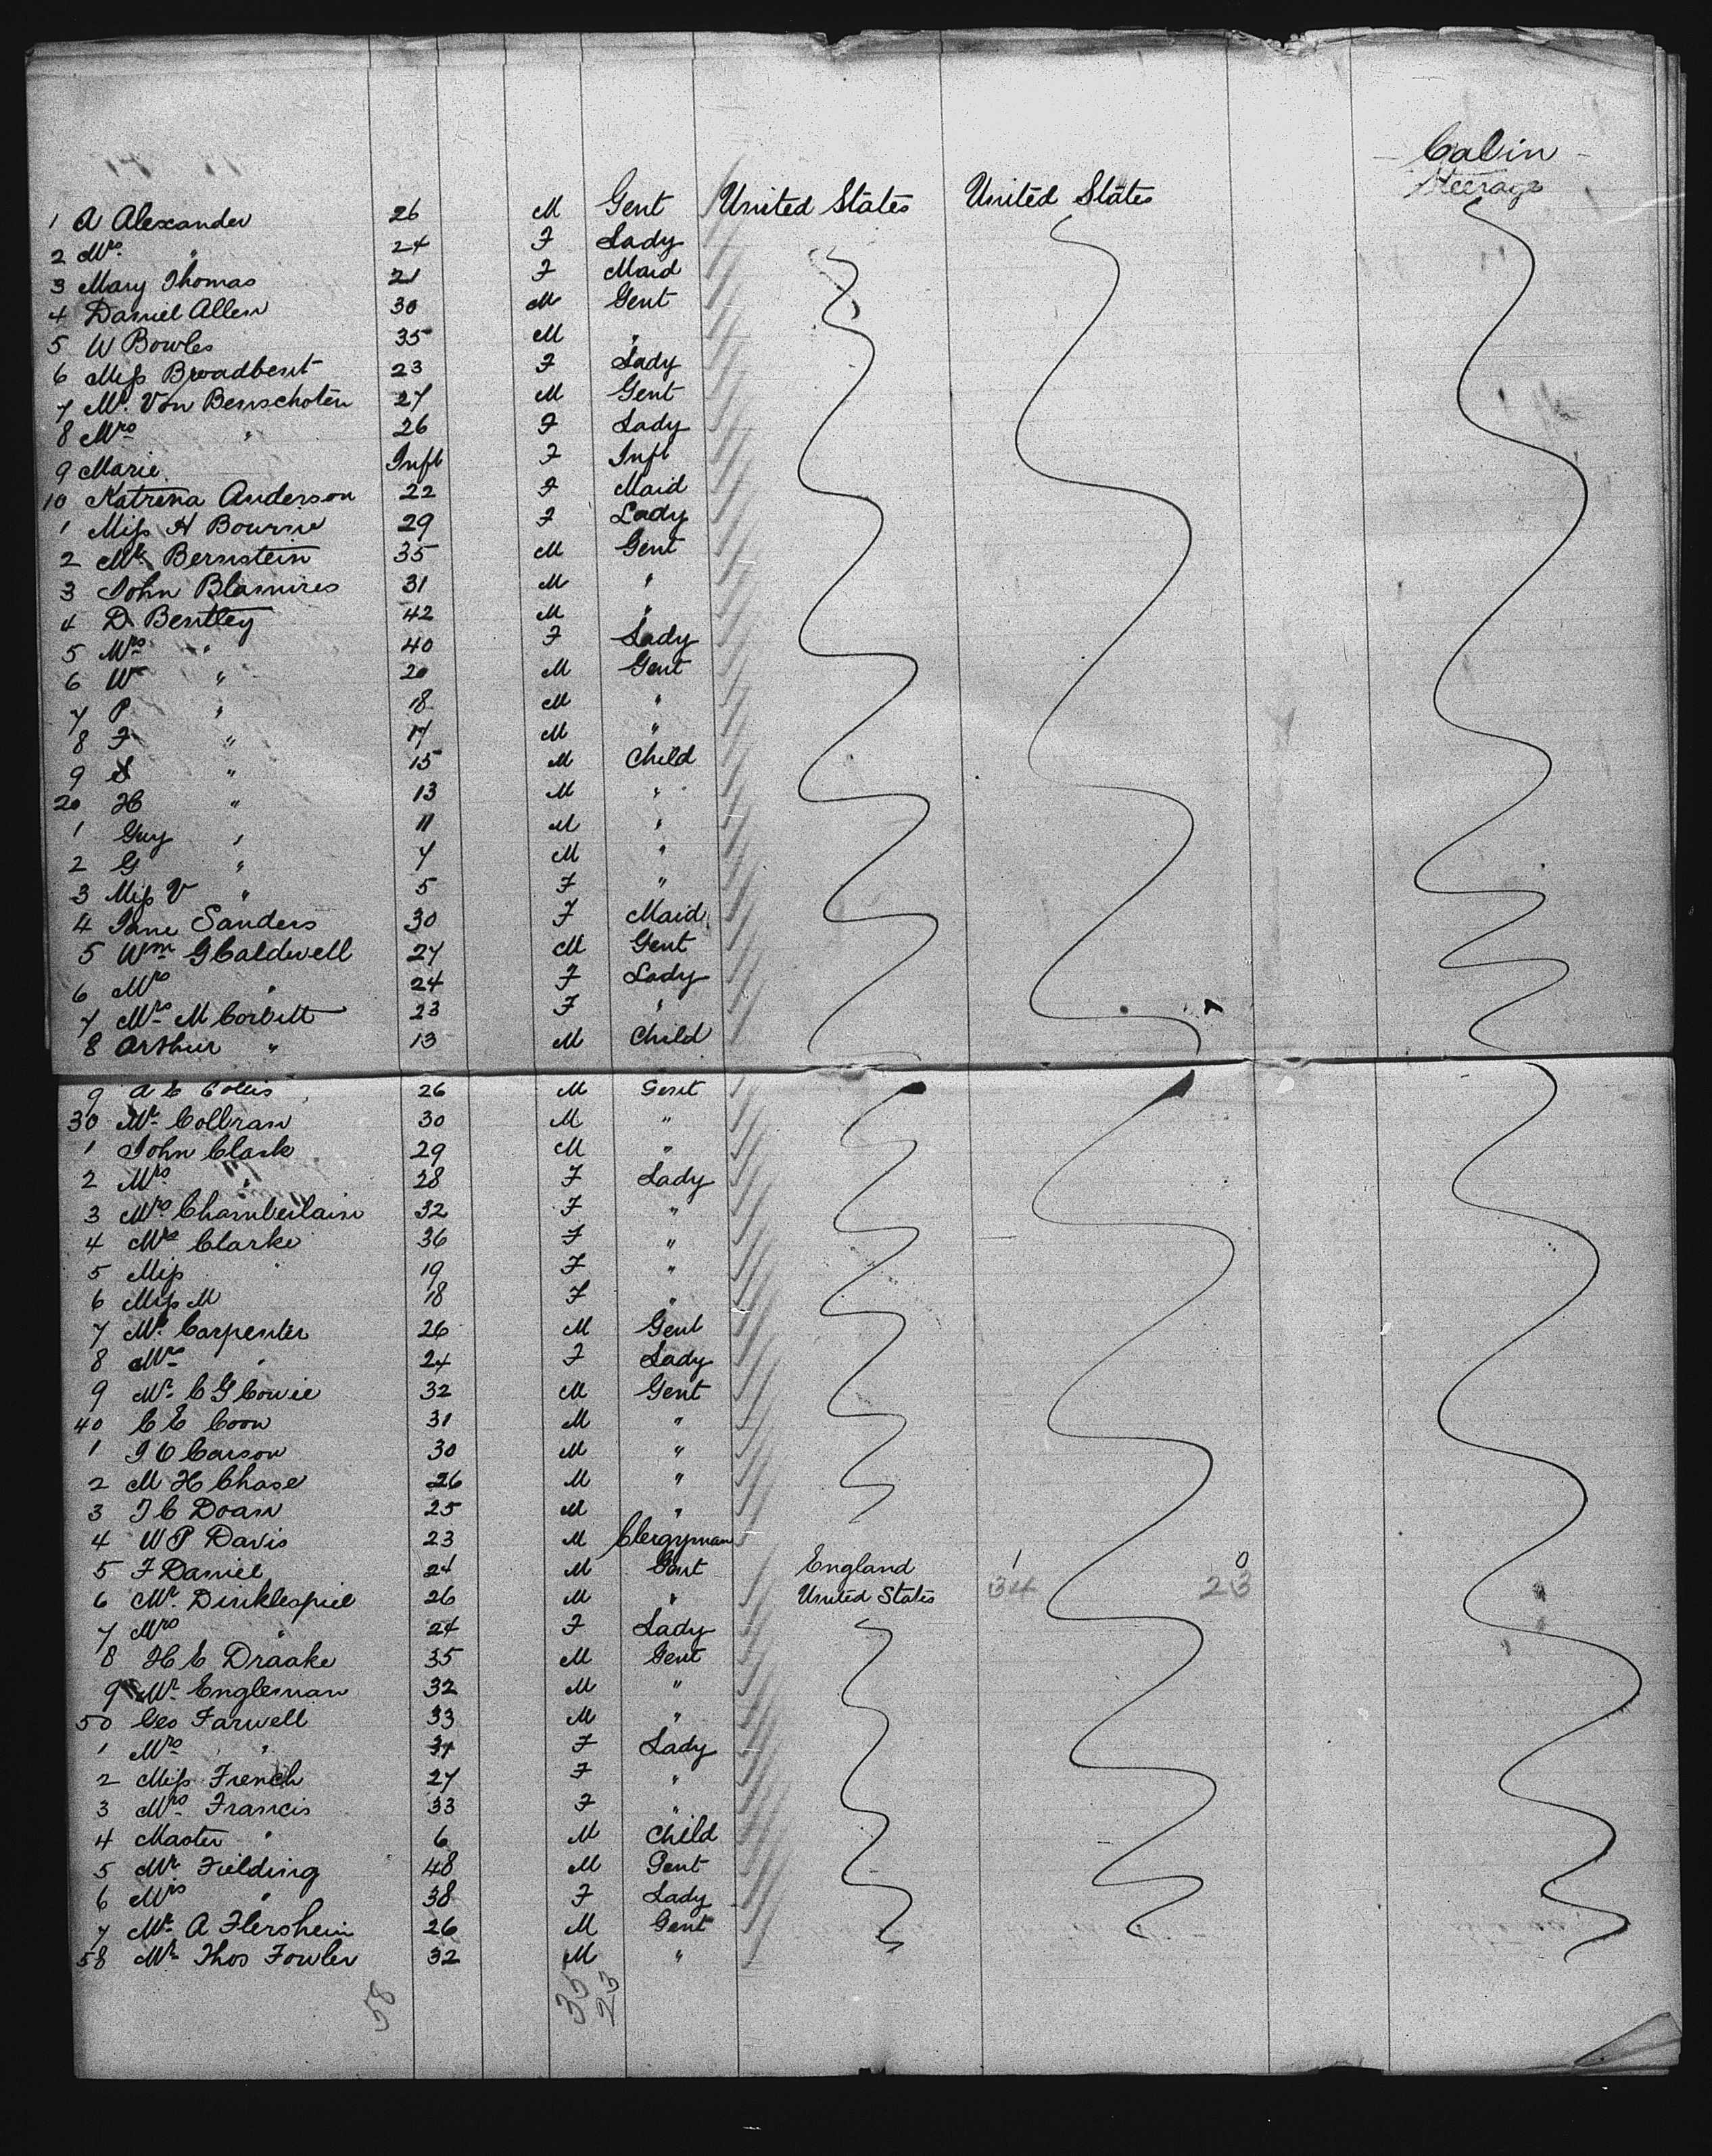 Cabin
Steerage
1 A Alexander 26 M Gent United States United States
2 Mrs " 24 F Lady
3 Mary Thomas 21 F Maid
4 Daniel Allen 30 M Gent
5 W Bowles 35 M "
6 Miss Broadbent 23 F Lady
7 Mr. Von Benschoten 27 M Gent
8 Mrs " 26 F Lady
9 Marie Inft F Inft
10 Katrena Anderson 22 F Maid
1 Miss H Bourne 29 F Lady
2 Mr Bernstein 35 M Gent
3 John Blamires 31 M "
4 D Bentley 42 M "
5 Mrs " 40 F Lady
6 W " 20 M Gent
7 P " 18 M "
8 F " 17 M "
9 S " 15 M Child
20 H " 13 M "
1 Guy " 11 M "
2 G " 7 M "
3 Miss V " 5 F "
4 Jane Sanders 30 F Maid
5 Wm G Caldwell 27 M Gent
6 Mrs " 24 F Lady
7 Mrs M Corbitt 23 F "
8 Arthur " 13 M Child
9 A E Collis 26 M Gent
30 Mr Colbran 30 M "
1 John Clark 29 M "
2 Mrs " 28 F Lady
3 Mrs Chamberlain 32 F "
4 Mrs Clarke 36 F "
5 Miss " 19 F "
6 Miss M 18 F "
7 Mr. Carpenter 26 M Gent
8 Mrs " 24 F Lady
9 Mr. C G Cowie 32 M Gent
40 C E Coon 31 M "
1 J C Carson 30 M "
2 M H Chase 26 M "
3 J C Doan 25 M "
4 W P Davis 23 M Clergyman
5 F Daniel 24 M Gent England 1 0
6 Mr. Dinklespiel 26 M " United States 34 23
7 Mrs " 24 F Lady
8 H E Draake 35 M Gent
9 Mr. Engleman 32 M "
50 Geo Farwell 33 M "
1 Mrs " 31 F Lady
2 Miss French 27 F "
3 Mrs Francis 33 F "
4 Master " 6 M Child
5 Mr Fielding 48 M Gent
6 Mrs " 38 F Lady
7 Mr. A Flershein 26 M Gent
58 Mr Thos Fowler 32 M "
58 35 23